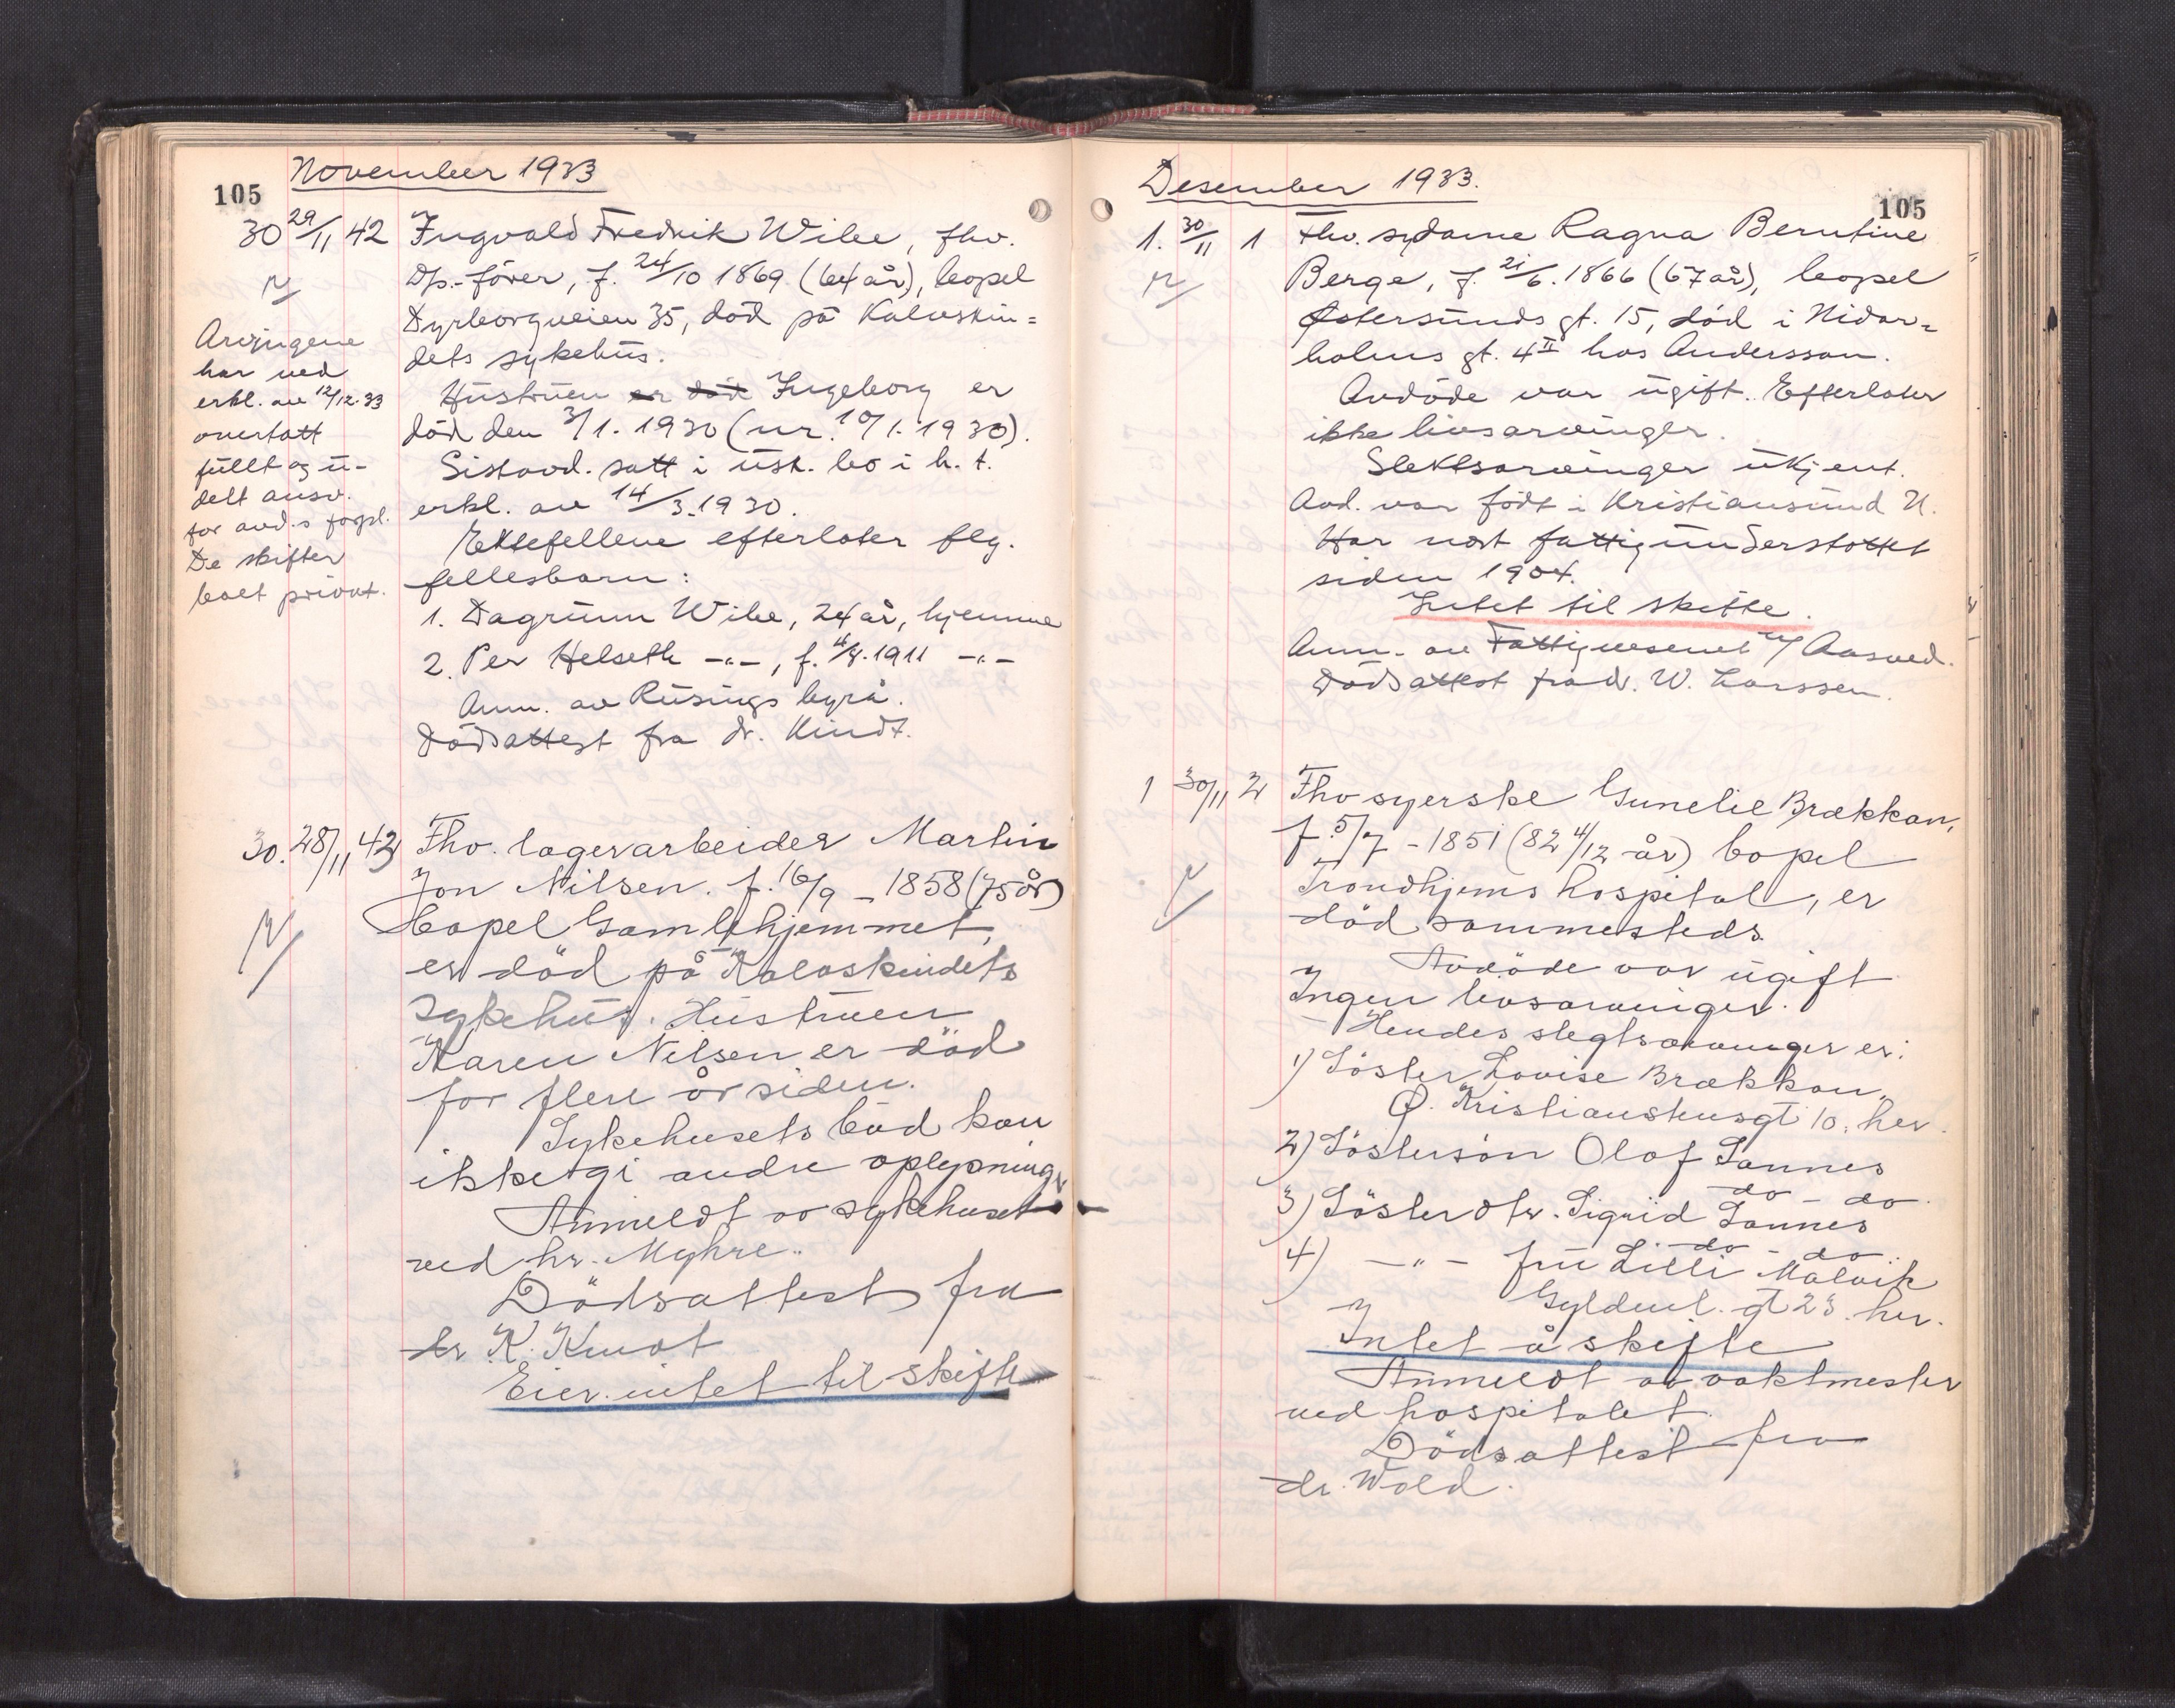 November 1933
105
30 29/11 42 Ingvald Fredrik Wibe, fhv.
D/s.-förer, f. 24/10 1869 (64 år), bopel
Dyrborgveien 35, död på Kalvskin=
dets sykehus.
Hustruen er död Ingeborg er
död den 3/1. 1930 (nr. 10/1. 1930).
Sistavd. satt i usk. bo i h. t.
erkl. av 14/3. 1930.
Ektefellene efterlater flg.
fellesbarn:
1. Dagrunn Wibe, 24 år, hjemme
2. Per Helseth -"-, f. 4/8. 1911 -"-
Anm. av Rusings byrå.
Dödsattest fra dr. Kindt.
Arvingene
har ved
erkl. av 12/12.33
overtatt
fullt og u-
delt ansv.
for avd.s forpl.
De skifter
boet privat.
30. 28/11 43 Fhv. lagerarbeider Martin
Jon Nilsen. f. 16/9 - 1858 (75 år)
bopel Gamlehjemmet,
er död på Kalvskindets
sykehus. Hustruen
Karen Nilsen er död
for flere år siden.
Sykehusets bud kan
ikke gi andre oplysninger
Anmeldt av sykehuset
ved hr. Myhre.
Dödsattest fra
dr K. Kindt
Eier intet til skifte
Desember 1933.
105
1. 30/11 1 Fhv. sydame Ragna Berntine
Berge, f. 21/6. 1866 (67 år), bopel
Østersunds gt. 15, död i Nidar=
holms gt. 4 II hos Andersson.
Avdöde var ugift. Efterlater
ikke livsarvinger.
Slektsarvinger ukjent.
Avd. var födt i Kristiansund N.
Har vært fattigunderstöttet
siden 1904.
Intet til skifte.
Anm. av Fattigvesenet v/ Aasved.
Dödsattest fra dr. W. Larssen.
1 30/11 2 Fhv syerske Gunelie Brækkan,
f. 5/7 - 1851 (82 4/12 år) bopel
Trondhjems hospital, er
död sammesteds.
Avdöde var ugift
Ingen livsarvinger.
Hendes slegtsarvinger er:
1) Söster Lovise Brækkan,
Ø. Kristianstensgt 10. her.
2) Söstersön Olaf Sannes
do - do
3) Söster dtr. Sigrid Sannes
do - do
4) -"- fru Lilli Malvik
Gyldenl. gt 23. her.
Intet å skifte
Anmeldt av vaktmester
ved hospitalet.
Dödsattest fra
dr. Wold.